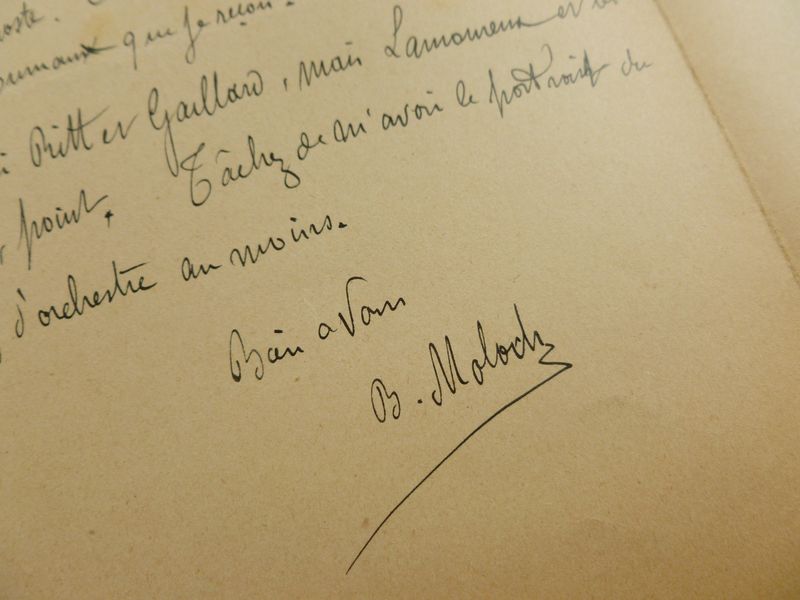 poste.
journaux que je reçois.
i Ritt et Gaillard, mais Lamoureux et
point. Tâchez de m'avoir le portrait du
d'orchestre au moins.
Bien a Vous
B. Moloch